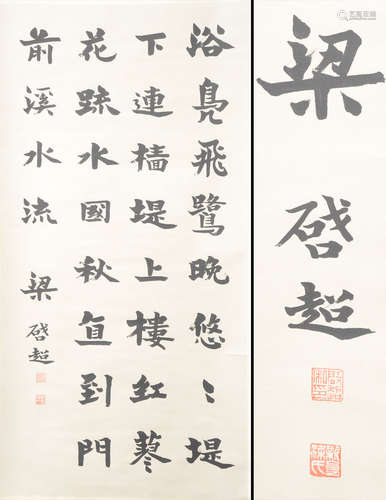 浴鳧飛鷺晚悠〻堤
下連檣堤上樓紅蓼
花疏水國秋直到門
前溪水流
梁啓超
梁
啓
超